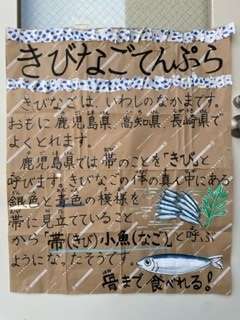 きびなごてんぷら
きびなごは、いわしのなかまです。
おもに鹿児島県、高知県、長崎県で
よくとれます。
鹿児島県では帯のことを「きび」と
呼びます。きびなごの体の真ん中にある
銀色と青色の模様を
帯に見立てていること
から「帯(きび)小魚(なご)」と呼ぶ
ようになったそうです。
骨まで食べれる！